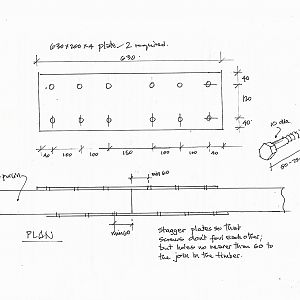 630x200x4 plate - 2 required.
630
40
120
40
40 100 100 150 100 100 40
10 dia
min 60
min 60
PLAN
Stagger plates so that
screws don't foul each other;
but holes no nearer than 60 to
the join in the timber.